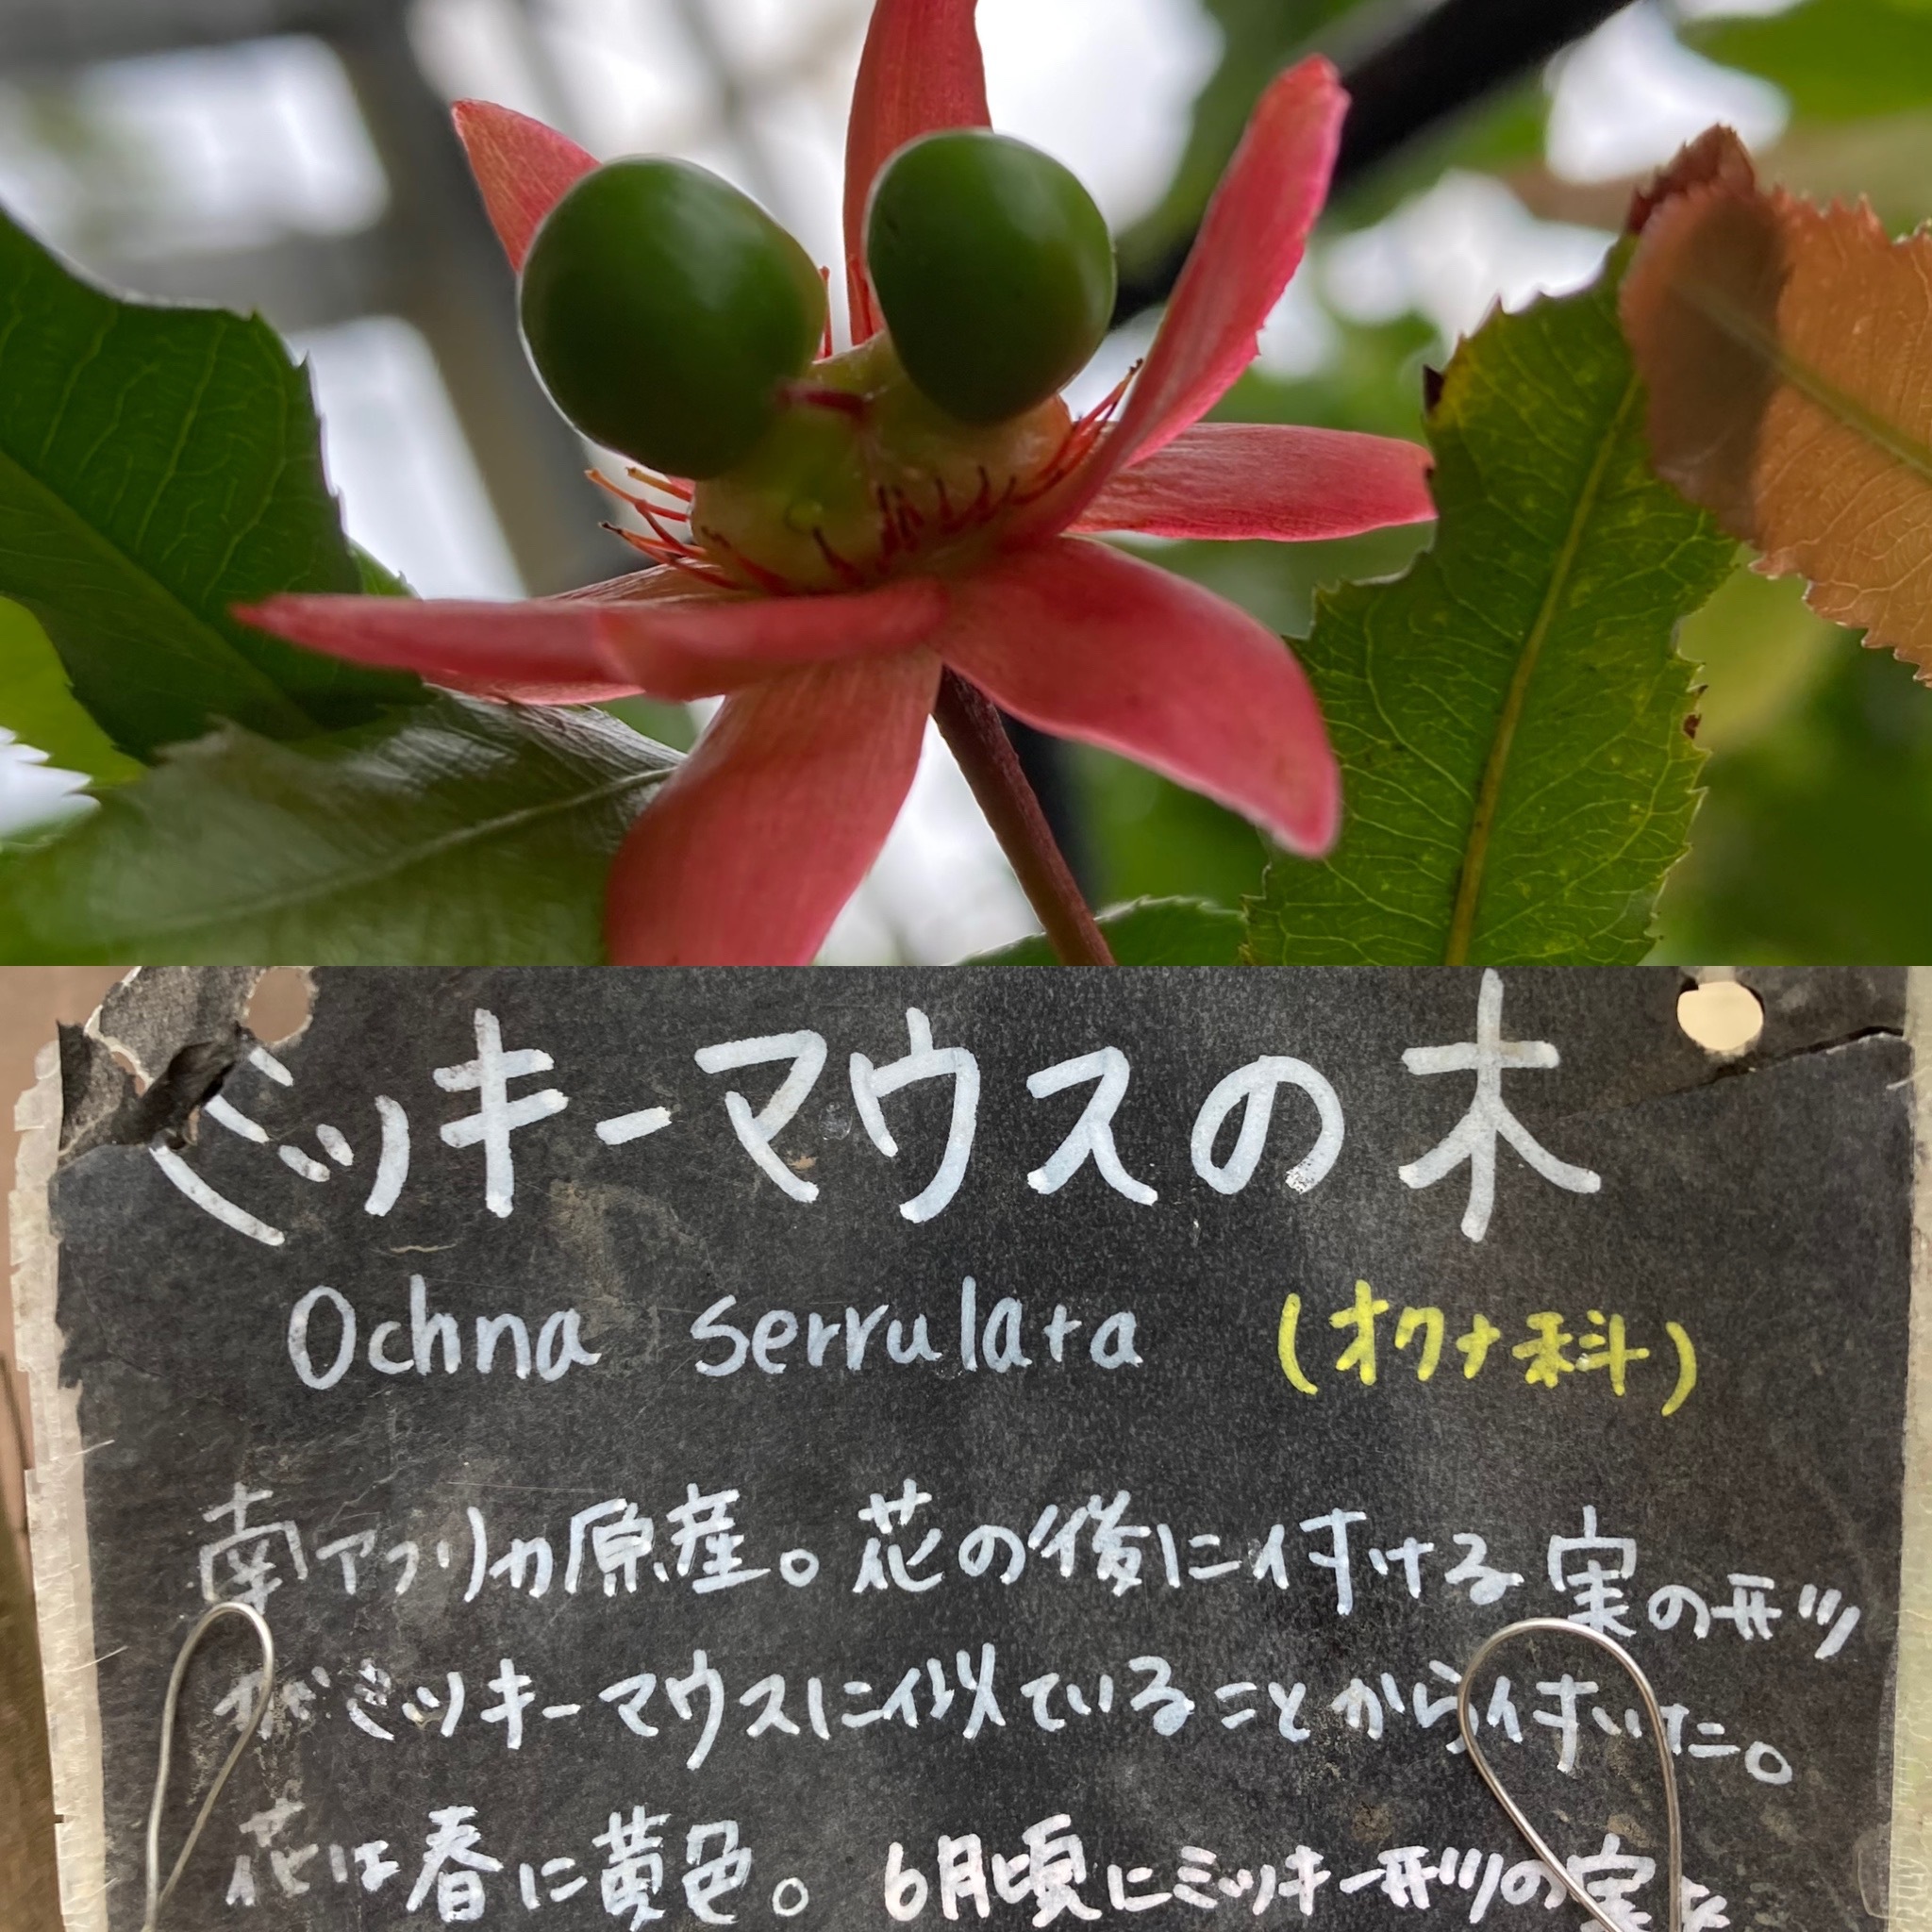 ミッキーマウスの木
Ochna serrulata (オクナ科)
南アフリカ原産。花の後に付ける実の形
がミッキーマウスに似ていることから付いた。
花は春に黄色。6月頃にミッキー形の実